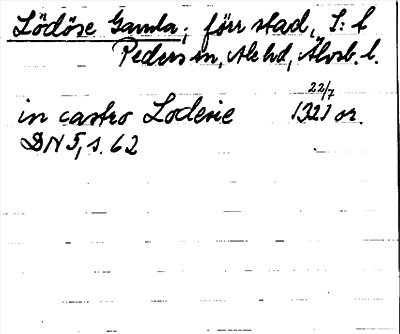 Lödöse Gamla, förr stad, S:t
Peders sn, Ale hd, Älvsb. l.
22/7
in castro Lodesie 1321 or.
DN 5, s. 62